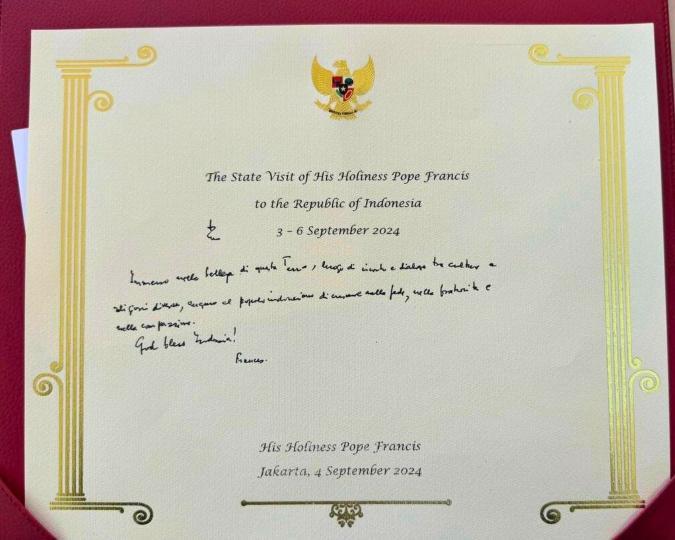 The State Visit of His Holiness Pope Francis
to the Republic of Indonesia
3 - 6 September 2024
Immerso nella bellezza di questa Terra, luogo di incontro e dialogo tra culture e
religioni diverse, auguro al popolo indonesiano di crescere nella fede, nella fraternità e
nella compassione.
God bless Indonesia!
Francesco.
His Holiness Pope Francis
Jakarta, 4 September 2024